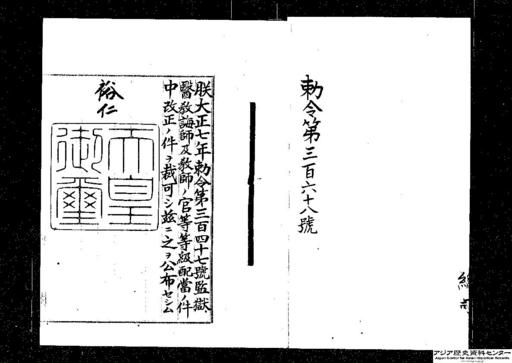 勅令第三百六十八號
朕大正七年勅令第三百四十七號監獄
醫敎誨師及敎師ノ官等等級配當ノ件
中改正ノ件ヲ裁可シ茲ニ之ヲ公布セシム
裕仁
天皇
御璽
アジア歴史資料センター
Japan Center for Asian Historical Records